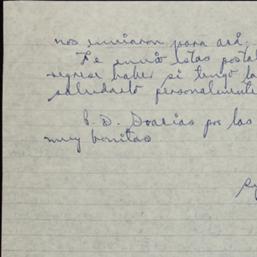 nos enviaron para acá.
Te envió estas postal
regrese haber si tengo la
saludarlo personalmente
P.D. Gracias por las
muy bonitas